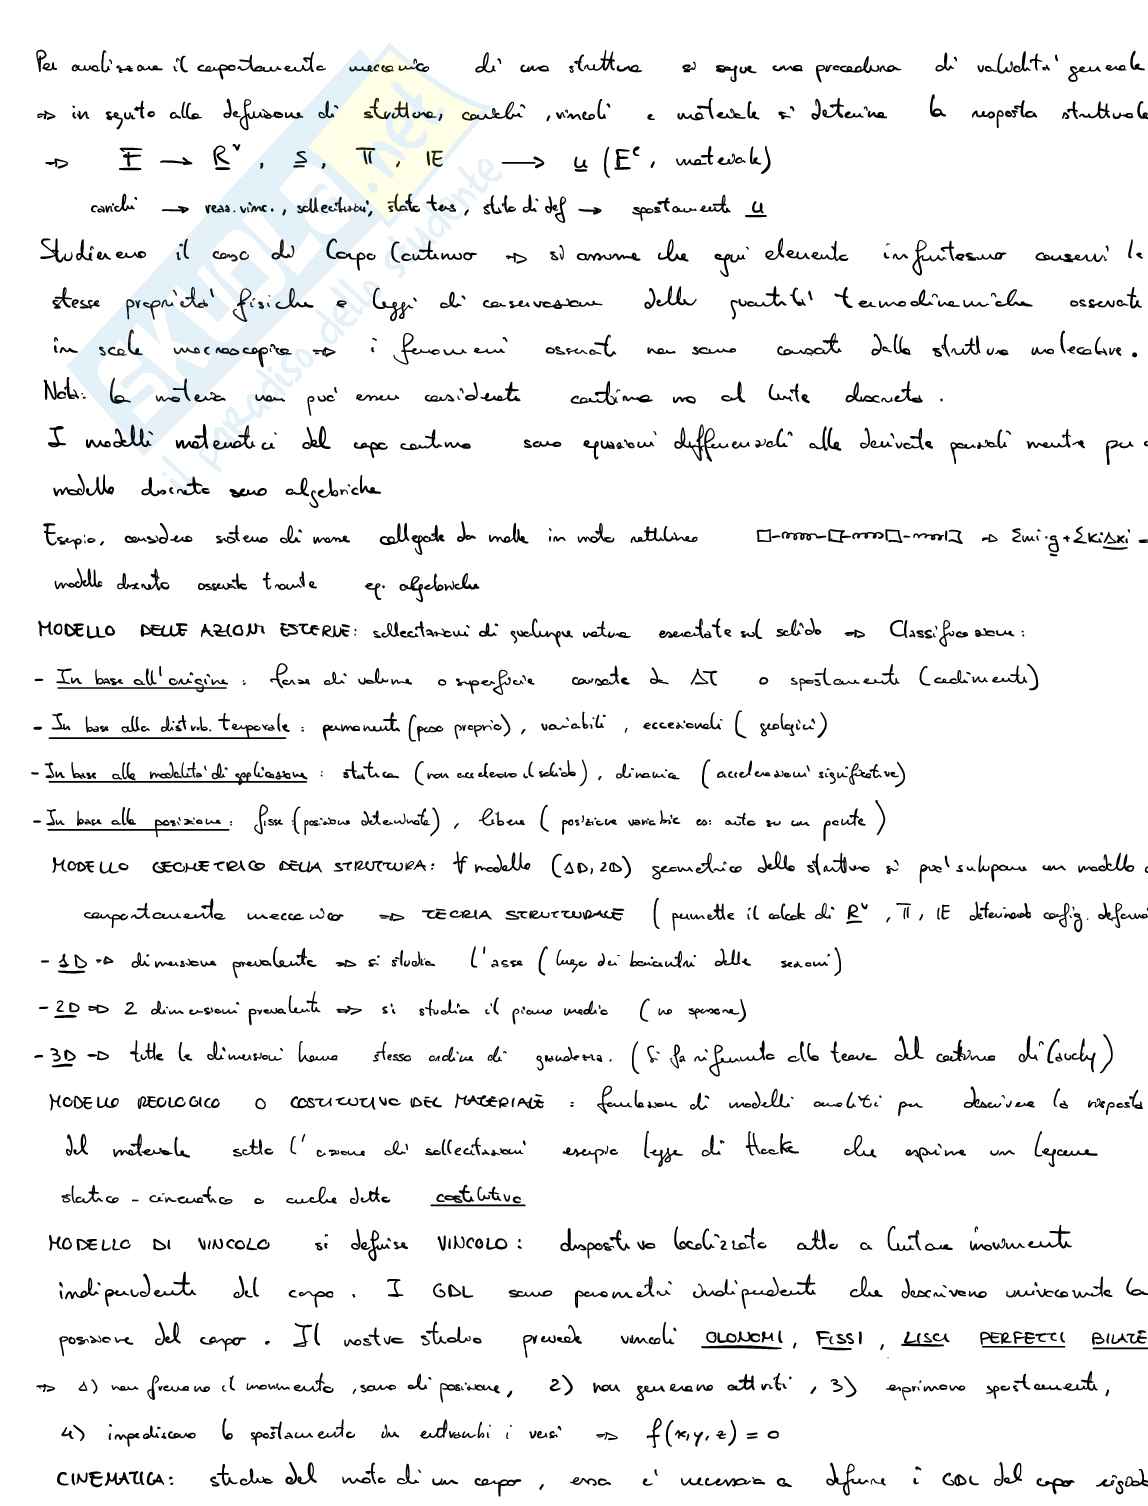 Per analizzare il comportamento meccanico di una struttura si segue una procedura di validità generale
⇒ in seguito alla definizione di struttura, carichi, vincoli e materiale si determina la risposta struttural
→ F → Rᵛ, S, Π, IE → u (Eᶜ, materiale)
carichi → reaz. vinc., sollecitazioni, stato tens, stato di def → spostamenti u
Studieremo il caso di Corpo Continuo ⇒ si assume che ogni elemento infinitesimo conservi le
stesse proprietà fisiche e leggi di conservazione delle quantità termodinamiche osservate
in scala macroscopica ⇒ i fenomeni osservati non sono causati dalla struttura molecolare.
Nota: la materia non può essere considerata continua ma al limite discreta.
I modelli matematici del corpo continuo sono equazioni differenziali alle derivate parziali mentre per
modello discreto sono algebriche
Esempio, considero sistema di masse collegate da molle in moto rettilineo ⇒ Σmi·g+ΣKiΔxi =
modello discreto osservato tramite eq. algebriche
MODELLO DELLE AZIONI ESTERNE: sollecitazioni di qualunque natura esercitate sul solido ⇒ Classificazione:
- In base all'origine: forze di volume o superficie causate da ΔT o spostamenti (cedimenti)
- In base alla distrib. temporale: permanenti (peso proprio), variabili, eccezionali (geologici)
- In base alla modalità di applicazione: statica (non accelerano il solido), dinamica (accelerazioni significative)
- In base alla posizione: fisse (posizione determinata), libere (posizione variabile es: auto su un ponte)
MODELLO GEOMETRICO DELLA STRUTTURA: ∀ modello (1D, 2D) geometrico della struttura si può sviluppare un modello
comportamento meccanico ⇒ TEORIA STRUTTURALE (permette il calcolo di Rᵛ, Π, IE determinando config. deform
- 1D ⇒ dimensione prevalente ⇒ si studia l'asse (luogo dei baricentri delle sezioni)
- 2D ⇒ 2 dimensioni prevalenti ⇒ si studia il piano medio (no spessore)
- 3D ⇒ tutte le dimensioni hanno stesso ordine di grandezza. (Si fa riferimento alla teoria del continuo di Cauchy)
MODELLO REOLOGICO O COSTITUTIVO DEL MATERIALE: di modelli analitici per descrivere la risposta
del materiale sotto l'azione di sollecitazioni esempio legge di Hooke che esprime un legame
statico - cinematico o anche detto costitutivo
MODELLO DI VINCOLO si definisce VINCOLO: dispositivo localizzato atto a limitare movimenti
indipendenti del corpo. I GDL sono parametri indipendenti che descrivono univocamente la
posizione del corpo. Il nostro studio prevede vincoli OLONOMI, FISSI, LISCI PERFETTI BILATE
⇒ 1) non frenano il movimento, sono di posizione, 2) non generano attriti, 3) esprimono spostamenti,
4) impediscono lo spostamento in entrambi i versi ⇒ f(x,y,z) = 0
CINEMATICA: studio del moto di un corpo, essa è necessaria a definire i GDL del corpo rigido
SKUOLA.net
il paradiso dello studente